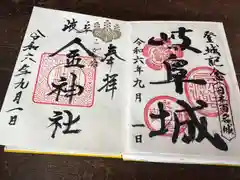 登城記念
日本百名城
岐阜城
令和六年九月一日
奉拝
岐阜
金神社
令和六年九月一日